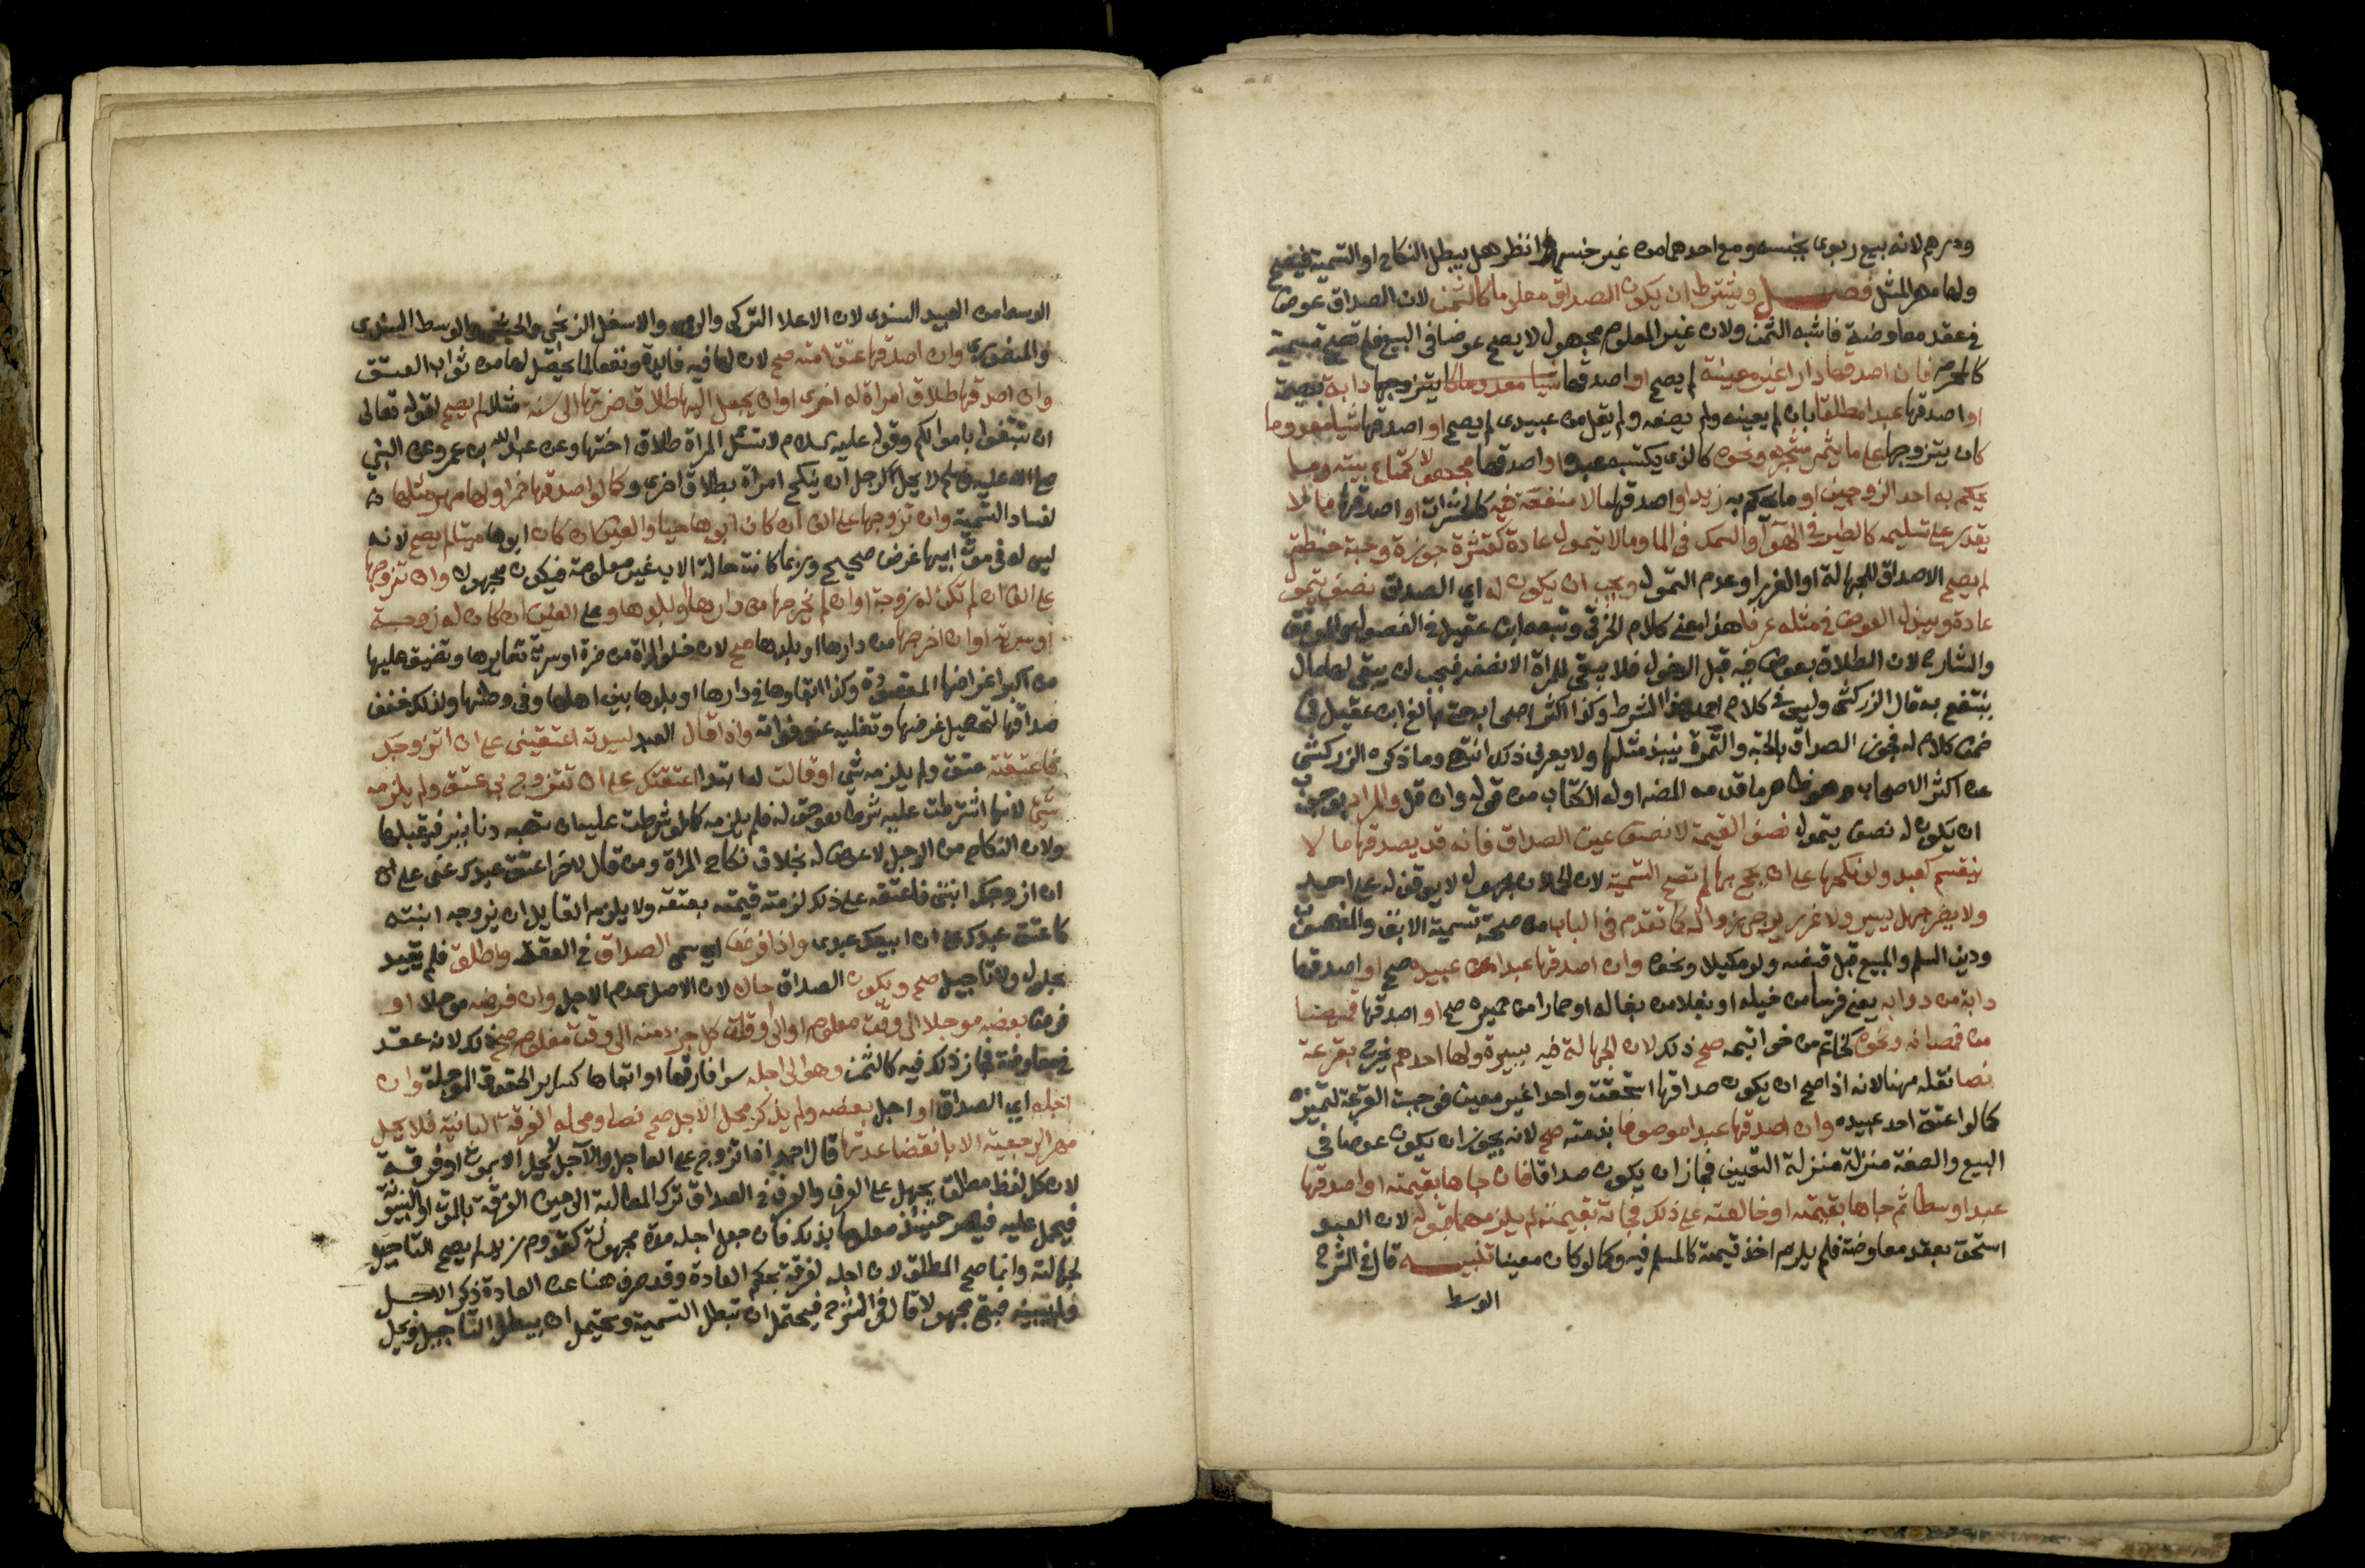 ودرهم لانه بيع ربوي بجنسه ومع احدهما من غير جنسهما انظر هل يبطل النكاح او التسمية فيصح
ولها مهر المثل فصل ويشترط ان يكون الصداق معلوما كالثمن لان الصداق عوض
في عقد معاوضة فاشبه الثمن ولان غير المعلوم مجهول لا يصح عوضا في البيع فلم تصح تسميته
كالمحرم فان اصدقها دارا غير معينة لم يصح او اصدقها دابة مبهمة
او اصدقها عبدا مطلقا بان لم يعينه ولم يصفه ولم يقل من عبيدي لم يصح او اصدقها شيا معدوما
كان يتزوجها على ما يثمر شجره ونحوه كالذي يكتسبه عبده او اصدقها مجهولا كمتاع بيته وما
يحكم به احد الزوجين او ما يحكم به زيد او اصدقها مالا منفعة فيه كالحشرات او اصدقها مالا
يقدر على تسليمه كالطير في الهوآ والسمك في الما وما لا يتمول عادة كقشرة جوزة وحبة حنطة
لم يصح الاصداق للجهالة او الغرر او عدم التمول ويجب ان يكون له اي الصداق نصف يتمول
عادة ويبذل العوض في مثله عرفا هذا معنى كلام الخرقي وتبعه ابن عقيل في الفصول والموفق
والشارح لان الطلاق بعوض فيه قبل الدخول فلا يبقى للمراة الا نصفه فيجب ان يبقى لها مال
ينتفع به قال الزركشي وليس في كلام احمد هذا الشرط وكذا اكثر اصحابه حتى بالغ ابن عقيل في
ضمن كلام له فجوز الصداق بالحبة والتمرة ينبذ مثلها ولا يعرف ذلك انتهى وما ذكره الزركشي
عن اكثر الاصحاب وهو ظاهر ما قدمه المصنف اول الكتاب من قوله وان قل والمراد بوجوب
ان يكون له نصف يتمول نصف القيمة لا نصف عين الصداق فانه قد يصدقها ما لا
ينقسم كعبد ولو نكحها على ان يحج بها لم تصح التسمية لان الحملان مجهول لا يوقف له على احد
ولا يضر جهل يسير ولا غرر يرجى زواله كما تقدم في الباب من صحة تسمية الابق والمغصوب
ودين السلم والمبيع قبل قبضه ولو مكيلا ونحوه وان اصدقها عبدا من عبيده صح او اصدقها
دابة من دوابه يعني فرسا من خيله او بغلا من بغاله او حمارا من حميره صح او اصدقها قميصا
من قمصانه ونحوه كخاتم من خواتمه صح ذلك لان الجهالة فيه يسيرة ولها احدهم يخرج بقرعة
نصا نقله مهنا لانه اذا صح ان يكون صداقها استحقت واحدا غير معين فوجبت القرعة لتميزه
كما لو اعتق احد عبيده وان اصدقها عبدا موصوفا بذمته صح لانه يجوز ان يكون عوضا في
البيع والصفة منزلة منزلة التعيين فجاز ان يكون صداقا فان جاها بقيمته او اصدقها
عبدا وسطا ثم جاها بقيمته او خالعته على ذلك فجاته بقيمته لم يلزمهما قبوله لان العبد
استحق بعقد معاوضة فلم يلزم اخذ قيمته كالمسلم فيه وكما لو كان معينا تنبيه قال في الشرح
الوسط
الوسط من العبيد السندي لان الاعلا التركي والرومي والاسفل الزنجي والحبشي والوسط السندي
والمنصوري وان اصدقها عتق امته صح لان لها فيه فايدة ونفعا لما يحصل لها من ثواب العتق
وان اصدقها طلاق امراة له اخرى او ان يجعل اليها طلاق ضرتها الى سنة مثلا لم يصح لقوله تعالى
ان تبتغوا باموالكم وقوله عليه السلام لا تسئل المراة طلاق اختها وعن عبد الله بن عمرو عن النبي
صلى الله عليه وسلم لا يحل لرجل ان ينكح امراة بطلاق اخرى وكما لو اصدقها خمرا ولها مهر مثلها
لفساد التسمية وان تزوجها على الف ان كان ابوها حيا والفين ان كان ابوها ميتا لم يصح لانه
ليس له في موت ابيها غرض صحيح وربما كانت حالة الاب غير معلومة فيكون مجهولا وان تزوجها
على الف ان لم تكن له زوجة او ان لم يخرجها من دارها او بلدها وعلى الفين ان كان له زوجة
او سرية او ان اخرجها من دارها او بلدها صح لان خلو المراة من ضرة او سرية تغايرها وتضيق عليها
من اكبر اغراضها المقصودة وكذا ابقاوها في دارها او بلدها بين اهلها وفي وطنها ولذلك تخفف
صداقها لتحصيل غرضها وتغليه عند فواته واذا قال العبد لسيدته اعتقيني على ان اتزوجك
فاعتقته عتق ولم يلزمه شي او قالت له ابتدا اعتقتك على ان تتزوج بي عتق ولم يلزمه
شي لانها اشترطت عليه شرطا هو حق له فلم يلزمه كما لو شرطت عليه ان تهبه دنانير فيقبلها
ولان النكاح من الرجل لا عوض له بخلاف نكاح المراة ومن قال لاخر اعتق عبدك عني على
ان ازوجك ابنتي فاعتقه على ذلك لزمته قيمته بعتقه ولا يلزم القايل ان يزوجه ابنته
كاعتق عبدك على ان ابيعك عبدي واذا فرض اي سمى الصداق في العقد واطلق فلم يقيد
بحلول ولا تاجيل صح ويكون الصداق حالا لان الاصل عدم الاجل وان فرضه موجلا او
فرض بعضه موجلا الى وقت معلوم او الى اوقات كل جزء منه الى وقت معلوم صح ذلك لانه عقد
في معاوضة فجاز ذلك فيه كالثمن وهو الى اجله سوا فارقها او ابقاها كساير الحقوق الموجلة وان
اجله اي الصداق او اجل بعضه ولم يذكر محل الاجل صح نصا ومحله الفرقة الباينة فلا يحل
مهر الرجعية الا بانقضا عدتها قال احمد اذا تزوج على العاجل والآجل لا يحل الا بموت او فرقة
لان كل لفظ مطلق يحمل على العرف والعرف في الصداق ترك المطالبة الى حين الفرقة بالموت او البينونة
فيحمل عليه فيصير حينئذ معلوما بذلك فان جعل اجله مدة مجهولة كقدوم زيد لم يصح التاجيل
لجهالته وانما صح المطلق لان اجله لفرقة بحكم العادة وقد صرف هنا عن العادة ذكر الاجل
ولم يبينه فبقي مجهولا قال في الشرح فيحتمل ان تبطل التسمية ويحتمل ان يبطل التاجيل ويحل